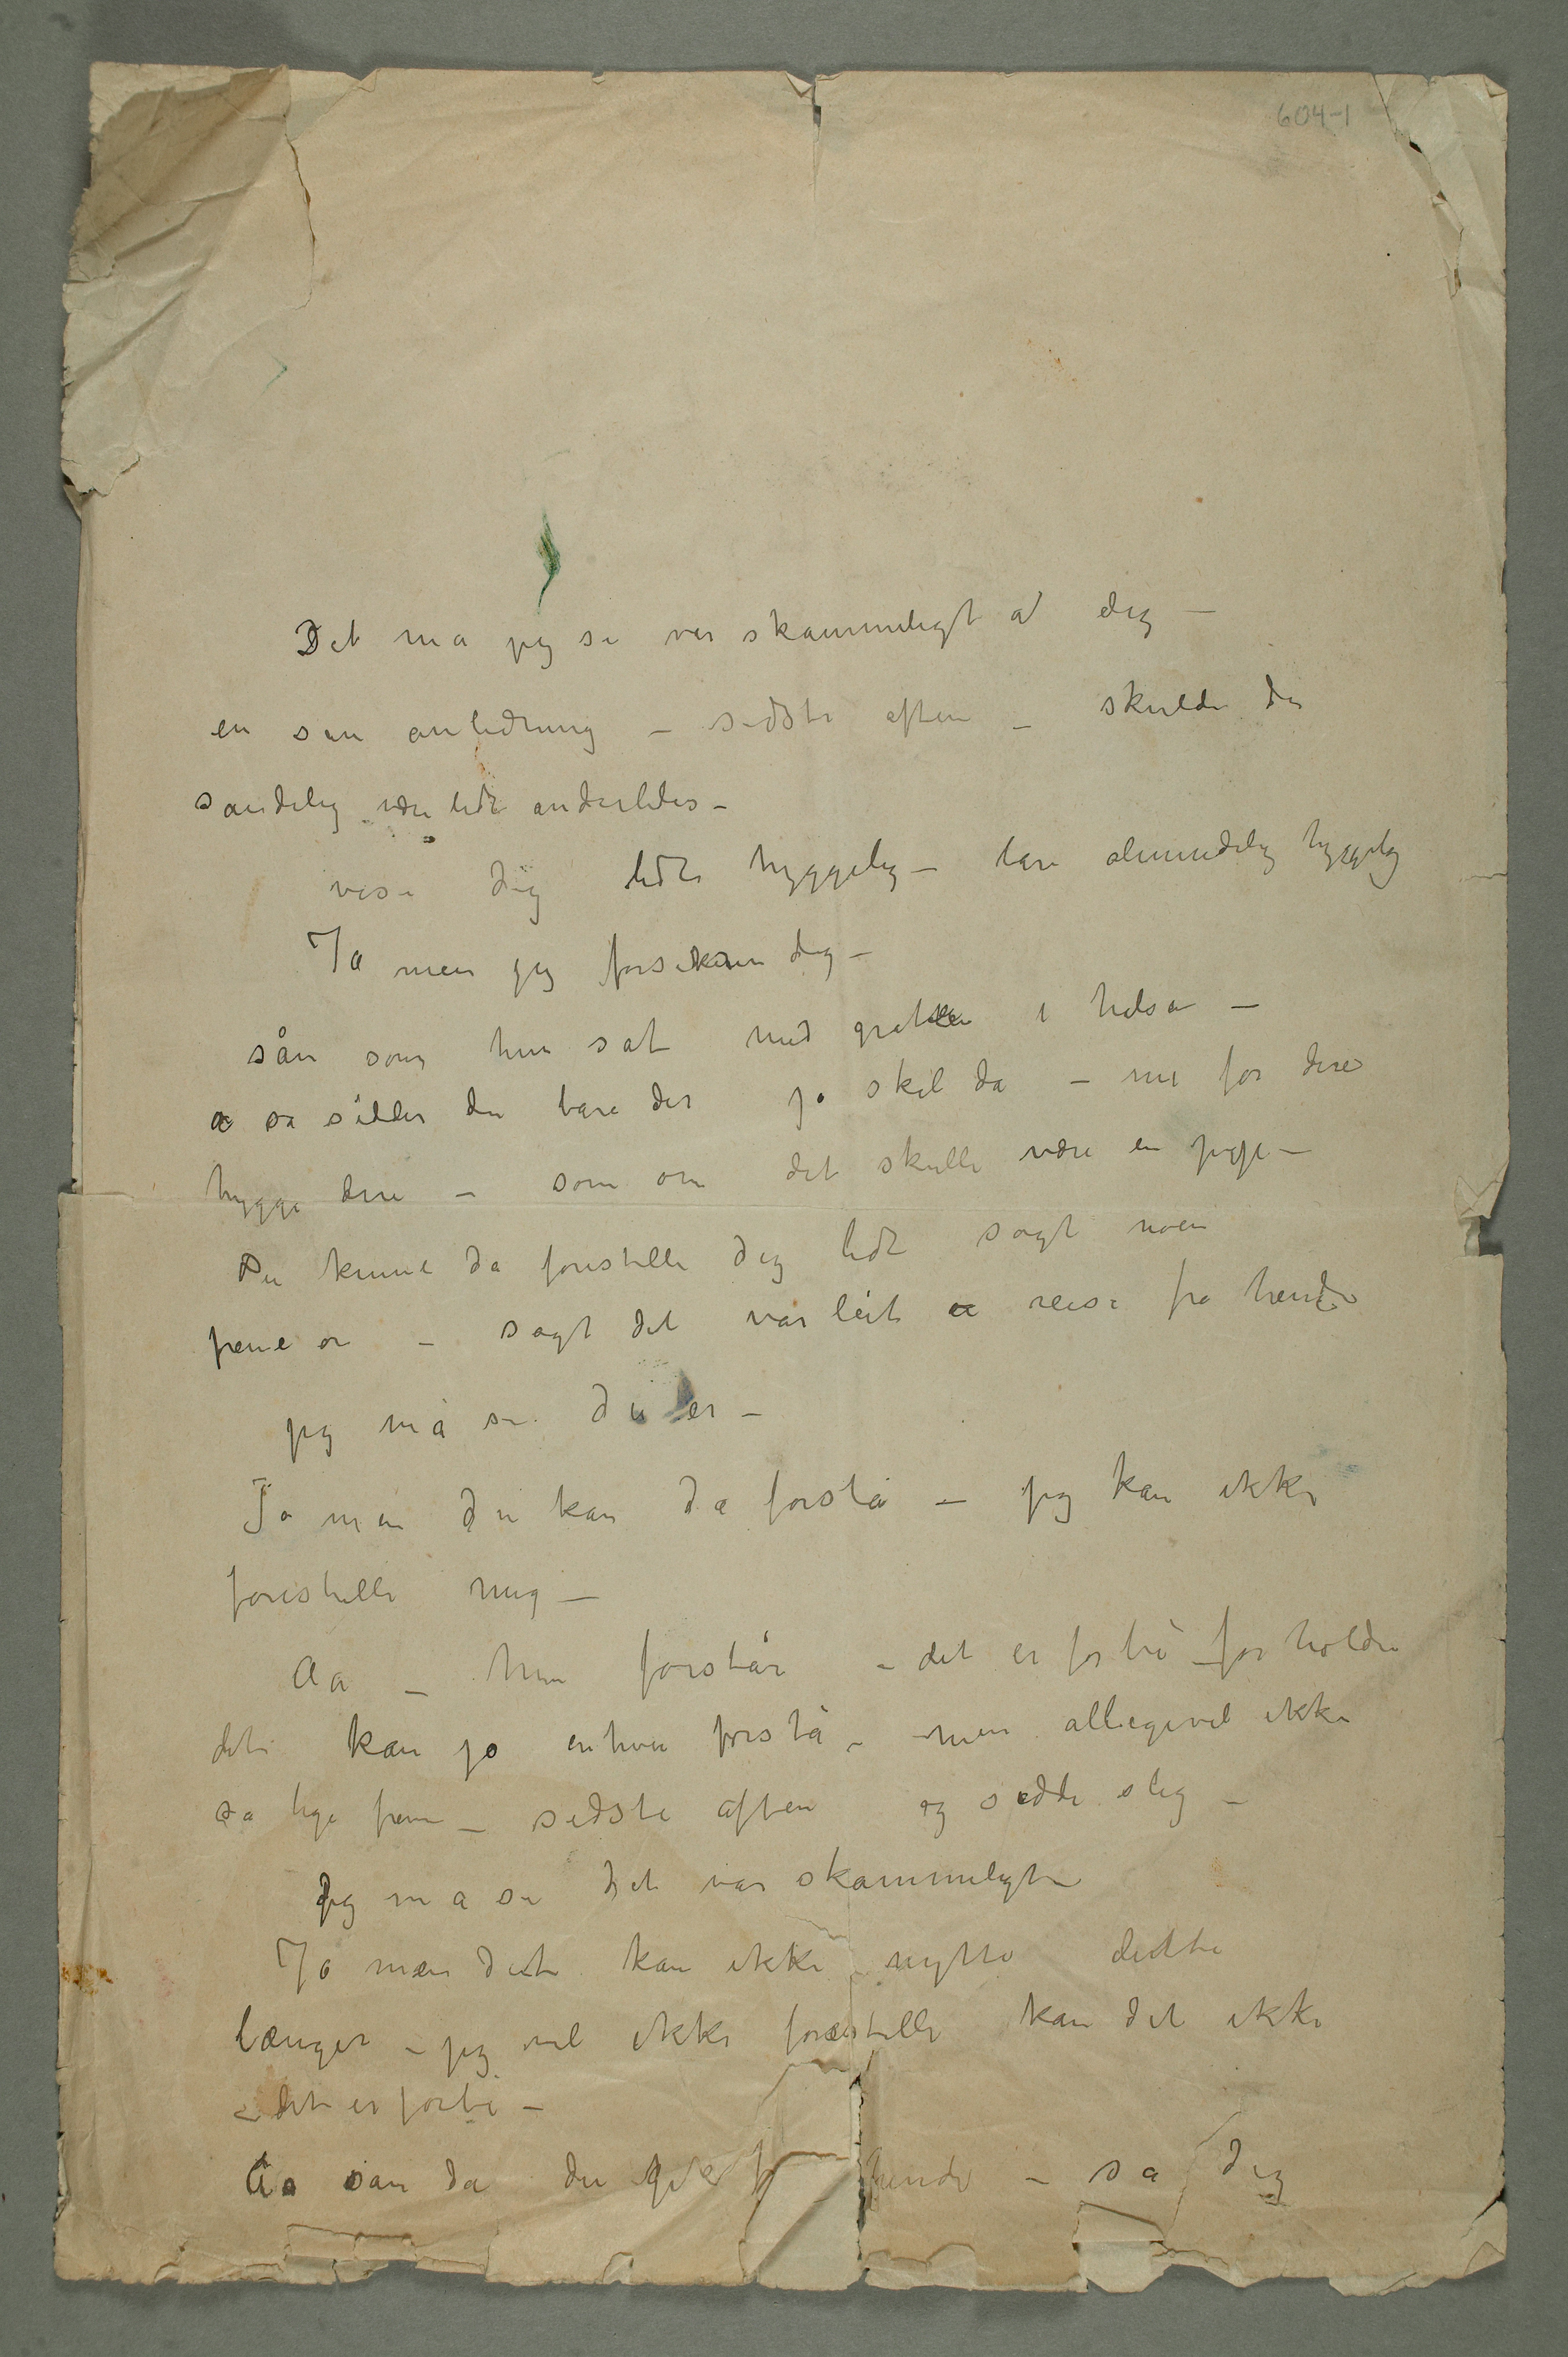 604-1
Det må jeg si var skammeligt a' dig –
en sån anledning – sidste aften – skulde du
sandelig være lidt anderledes –
vise dig lidt hyggelig – bare almindelig hyggelig
Ja men jeg forsikrer dig –
sån som hun sat med gråten i halsen –
a så sidder du bare der jo skil da – nu før dere
hygge dere – som om det skulle være en pige –
Du kunne da forestille dig lidt sagt noen
fraser – sagt det var leit a reise fra hende
jeg må si du er –
Ja men du kan da forstå – jeg kan ikke
forestille mig –
Aa – hun forstår – det er forbi forholdet
det kan jo enhver forstå – men alligevel ikke
så lige frem – sidste aften og sidde slig –
Jeg må si det var skammeligt
Ja men det kan ikke nytte dette
længer – jeg vil ikke forestille kan det ikke
– det er forbi –
Aa sån da du gik f hende – sa dig